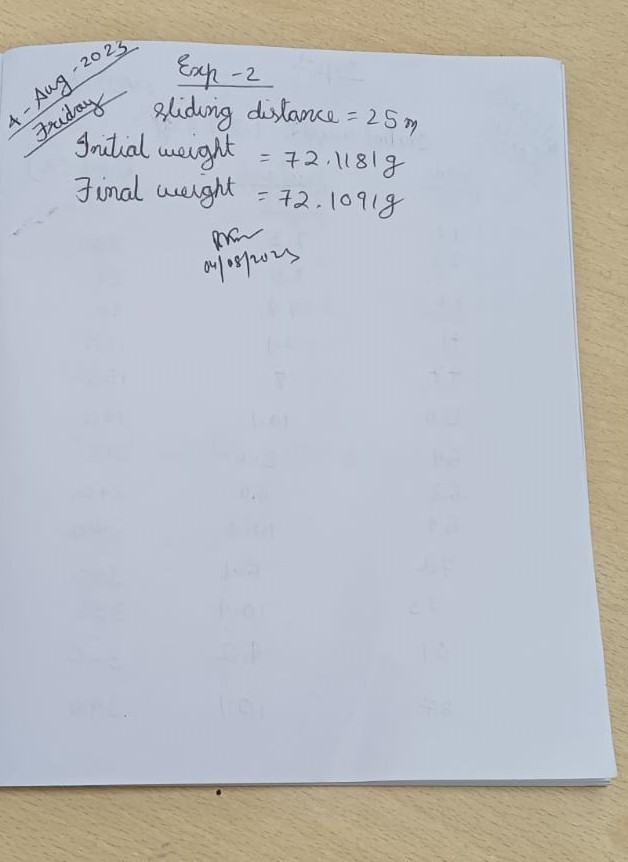 4-Aug-2023
Friday
Exp-2
sliding distance = 25m
Initial weight = 72.1181g
Final weight = 72.1091g
04/08/2023